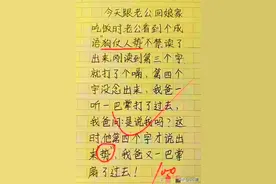 今天跟老公回娘家
吃饭时老公看到个成
语狗仗人势不禁读了
出来,刚读到第三个字
就打了个嗝,第四个
字没念出来,我爸一
听一巴掌打了过去,
我爸问:是说我吗?这
时他第四个字才说出
来势,我爸又一巴掌
扇了过去!
100